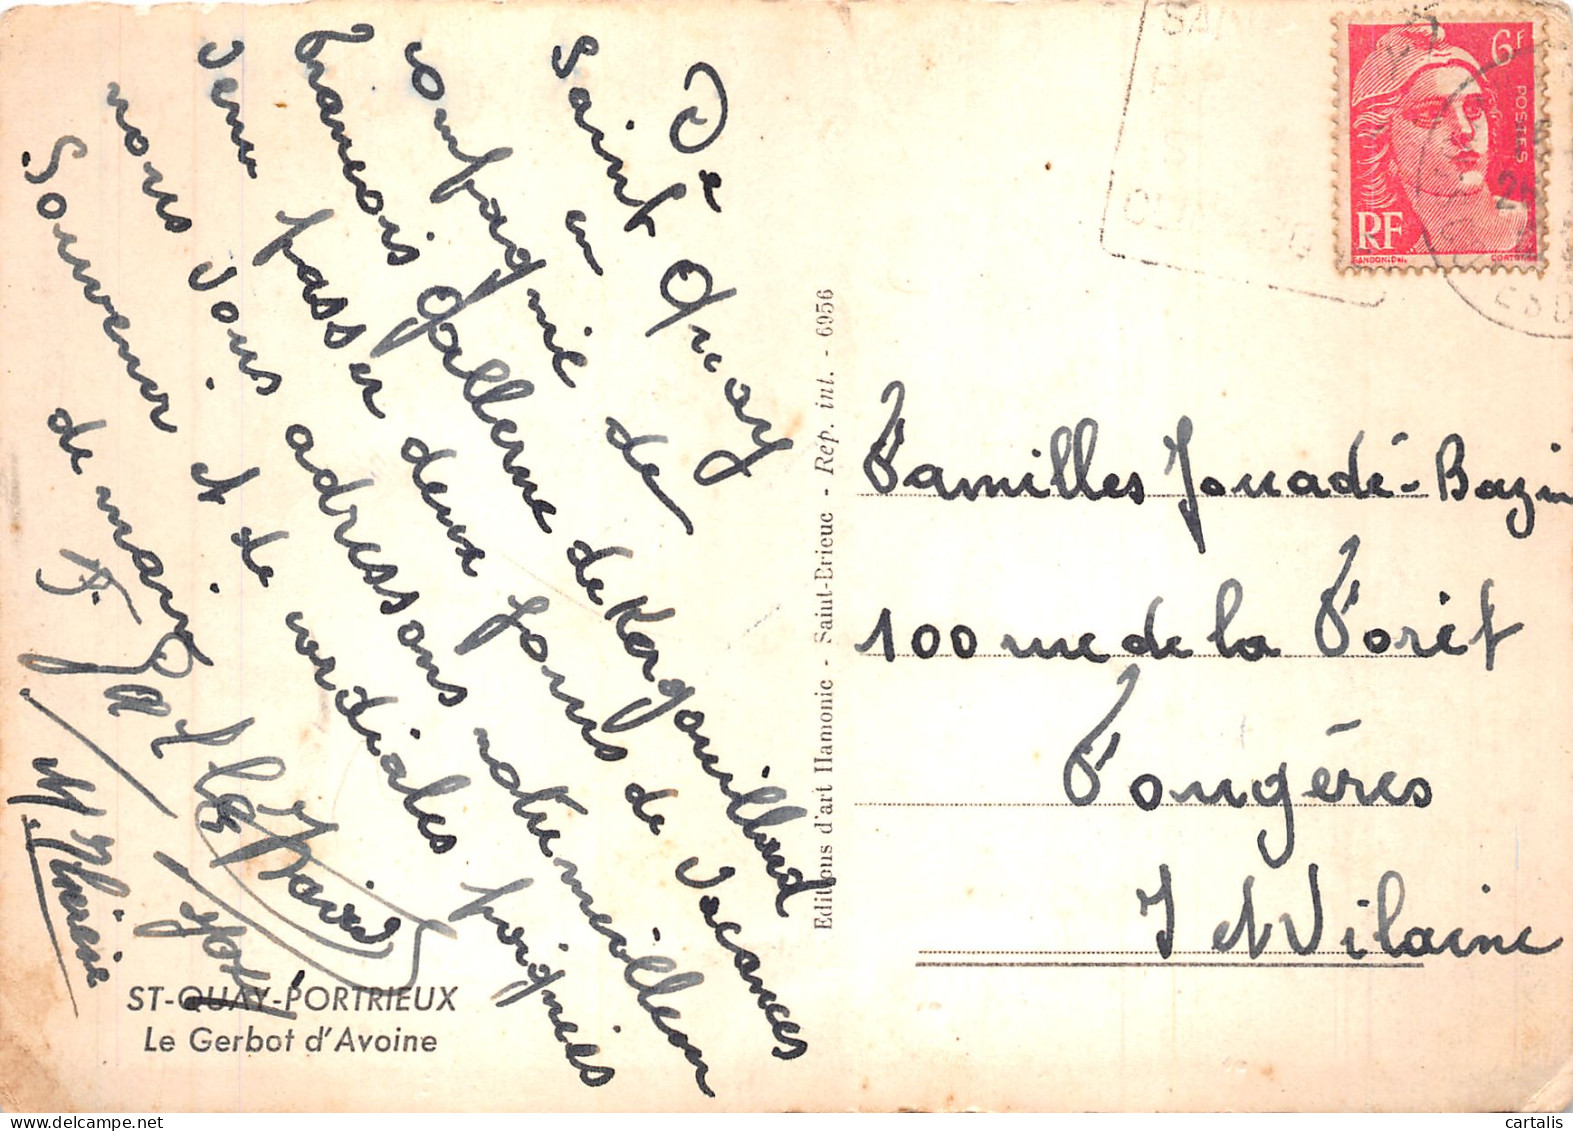 De
Saint Quay
en
compagnie de
François Gallerne de Kergouillard
venu passer deux jours de vacances
nous vous adressons notre meilleur
Souvenir et de cordiales poignées
de mains
ST-QUAY-PORTRIEUX
Le Gerbot d'Avoine
Editions d'art Hamonic - Saint-Brieuc - Rép. int. - 6956
6F
POSTES
RF
GANDON.Del.
Familles Jouadé-Bazin
100 rue de la Forêt
Fougères
I et Vilaine
cartalis